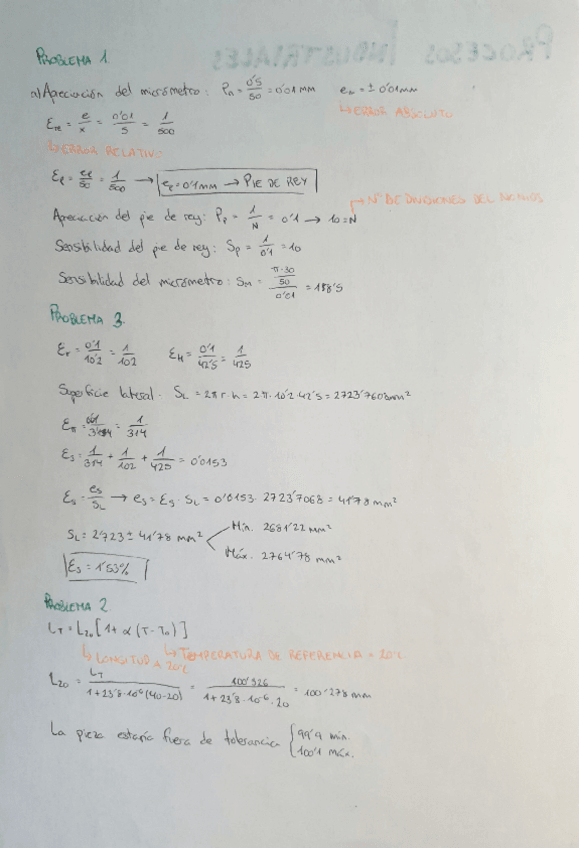 PROCESOS INDUSTRIALES
PROBLEMA 1.
a) Apreciación del micrómetro: Pn = 0'5/50 = 0'01 mm   em = ± 0'01 mm
↳ ERROR ABSOLUTO
Em = e/x = 0'01/5 = 1/500
↳ ERROR RELATIVO
Ep = ep/50 = 1/500 → ep = 0'1 mm → PIE DE REY
↱ Nº DE DIVISIONES DEL NONIUS
Apreciación del pie de rey: Pp = 1/N = 0'1 → 10 = N
Sensibilidad del pie de rey: Sp = 1/0'1 = 10
Sensibilidad del micrómetro: Sm = (π·30/50)/0'01 = 188'5
PROBLEMA 3.
Er = 0'1/10'2 = 1/102   EH = 0'1/42'5 = 1/425
Superficie lateral. SL = 2πr·h = 2π·10'2·42'5 = 2723'7603 mm²
Eπ = 0'01/3'14 = 1/314
Es = 1/314 + 1/102 + 1/425 = 0'0153
Es = es/SL → es = Es · SL = 0'0153 · 2723'7068 = 41'78 mm²
SL = 2'723 ± 41'78 mm²
Mín. 2681'22 mm²
Máx. 2764'78 mm²
Es = 1'53%
PROBLEMA 2.
LT = L20 [1 + α (T - T0)]
↳ LONGITUD A 20ºC ↳ TEMPERATURA DE REFERENCIA = 20ºC
L20 = LT/(1 + 23'8·10⁻⁶(40-20)) = 100'326/(1 + 23'8·10⁻⁶·20) = 100'278 mm
La pieza estaría fuera de tolerancia { 99'9 mín.
100'1 máx.